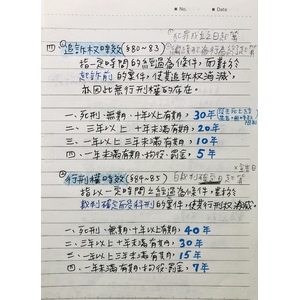 No.
Date
犯罪成立之日起算
四 ①追訴权時效(§80~83)
指一定時間之經過為條件,而對於
起訴前的案件,使其追訴权消滅,
亦因此無行刑權的存在。
一、死刑、無期、十年以上有期,30年
二、三年以上十年未滿有期,20年
三、一年以上三年未滿有期,10年
四、一年未滿有期、拘役、罰金,5年
②行刑權時效(§84~85)
自裁判確定日起算
指以一定時間之經過為條件,對於
裁判確定及科刑的案件,使其行刑权消滅。
一、死刑、無期、十年以上有期,40年
二、三年以上十年未滿有期,30年
三、一年以上三年未滿有期,15年
四、一年未滿有期、拘役、罰金,7年